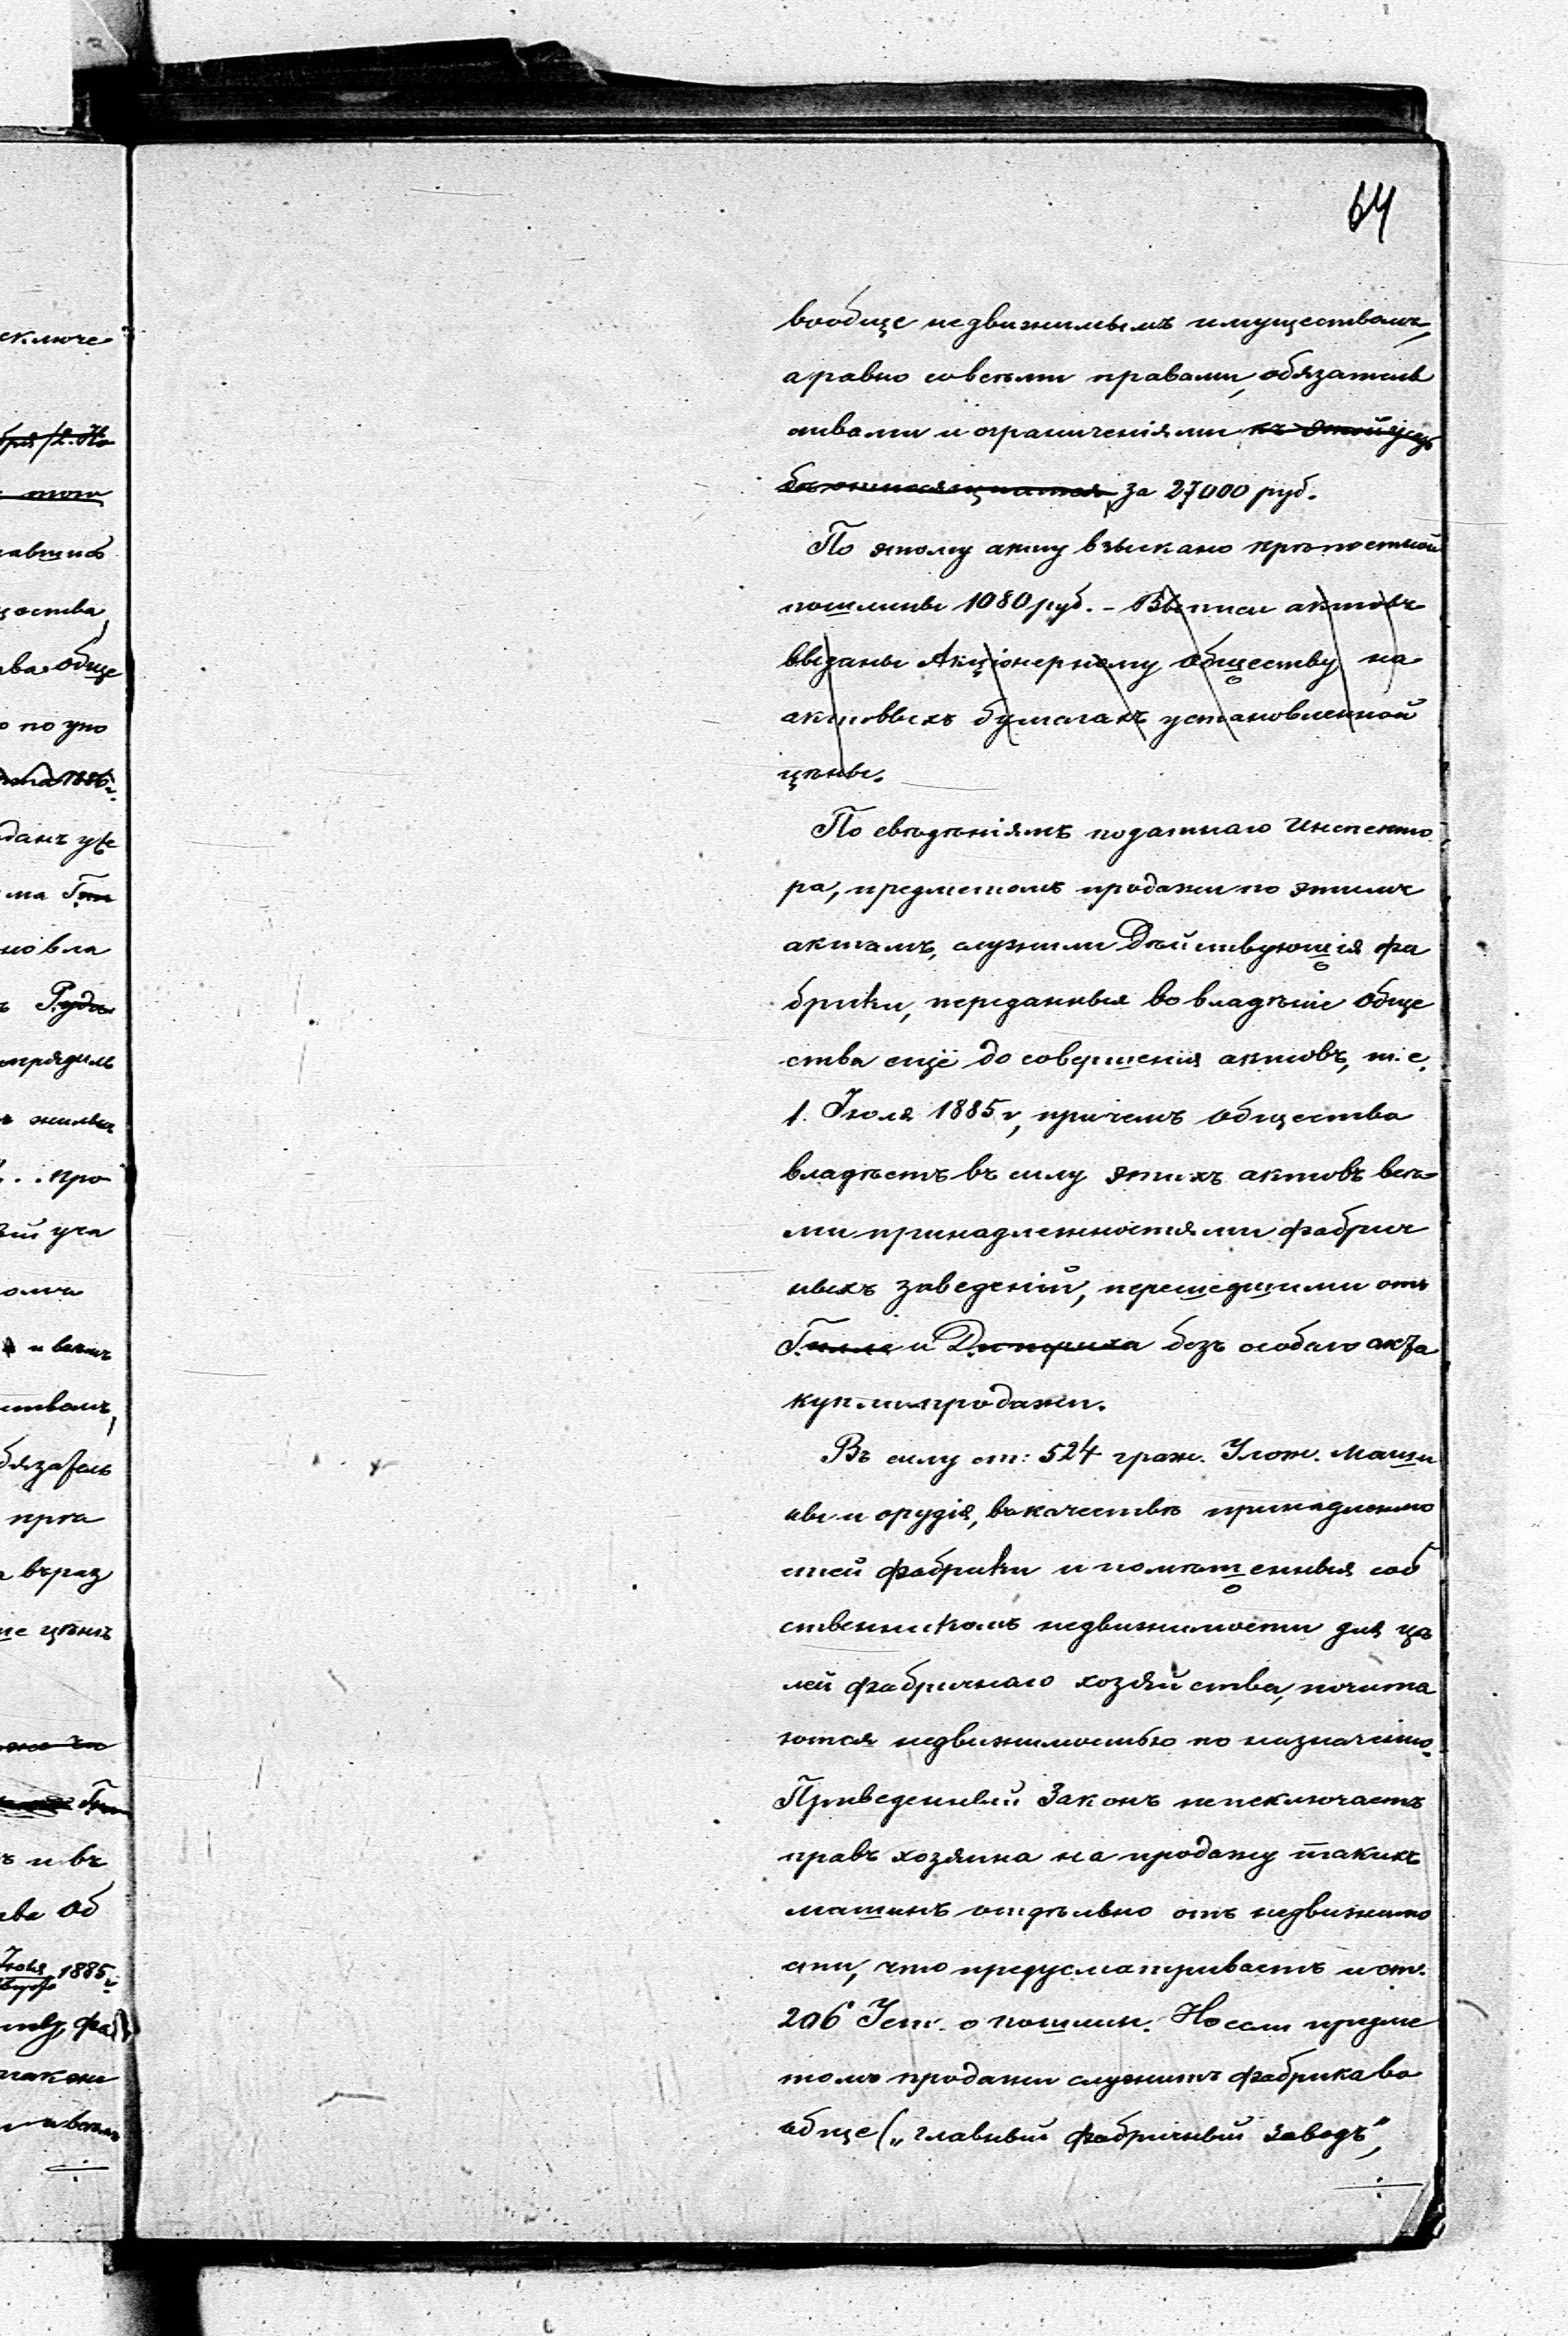 64
вообще недвижимымъ имуществомъ,
а равно со всѣми правами, обязатель
ствами и ограниченіями къ этой усадь
бѣ относящимися, за 27000 руб.
По этому акту взыскано крѣпостной
пошлины 1080 руб. - Выписи актовъ
выданы Акціонерному обществу на
актовыхъ бумагахъ установленной
цѣны.
По свѣдѣніямъ податнаго Инспекто
ра, предметомъ продажи по этимъ
актамъ, служили Дѣйствующія фа
брики, переданныя во владѣніе обще
ства ещё до совершенія актовъ, т. е.
1. Іюля 1885 г, причемъ общество
владѣетъ въ силу этихъ актовъ всѣ
ми принадлежностями фабрич
ныхъ заведеній, перешедшими отъ
Гилле и Дитриха безъ особаго акта
купли продажи.
Въ силу ст: 524 граж. Улож. маши
ны и орудія, въ качествѣ принадлежно
стей фабрики и помѣщенныя соб
ственникомъ недвижимости для цѣ
лей фабричнаго хозяйства, почита
ются недвижимостью по назначенію.
Приведенный Законъ не исключаетъ
правъ хозяина на продажу такихъ
машинъ отдѣльно отъ недвижимо
сти, что предусматриваетъ и ст.
206 Уст. о пошлин. Но если предме
томъ продажи служитъ фабрика во
обще („главный фабричный заводъ",
ключе
того
щества,
ава обще
о по упо
данъ уже
ма Гил
но вла
про
ій уча
ствомъ,
бязатель
въ раз
ше цѣнъ
ъ и въ
ва Об
Іюля 1885 г.